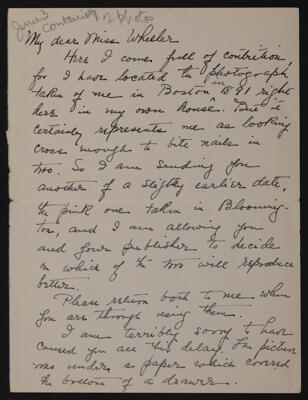 June 3
containing 2 photos
My dear Miss Wheeler
Here I come full of contrition,
for I have located the photograph
taken of me in Boston in 1891 right
here in my own house. But it
certainly represents me as looking
cross enough to bite nails in
two. So I am sending you
another of a slightly earlier date,
the pink one taken in Blooming-
ton, and I am allowing you
and your publisher to decide
on which of the two will reproduce
better.
Please return both to me when
you are through using them.
I am terribly sorry to have
caused you all this delay. The picture
was under a paper which covered
the bottom of a drawer.